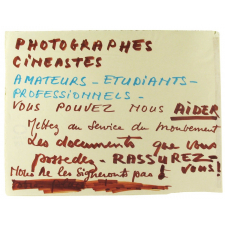 PHOTOGRAPHES
CINEASTES
AMATEURS - ETUDIANTS -
PROFESSIONNELS -
VOUS POUVEZ NOUS AIDER
Mettez au service du mouvement
des documents que vous
possedez - RASSUREZ-
VOUS!
Nous ne les signerons pas!